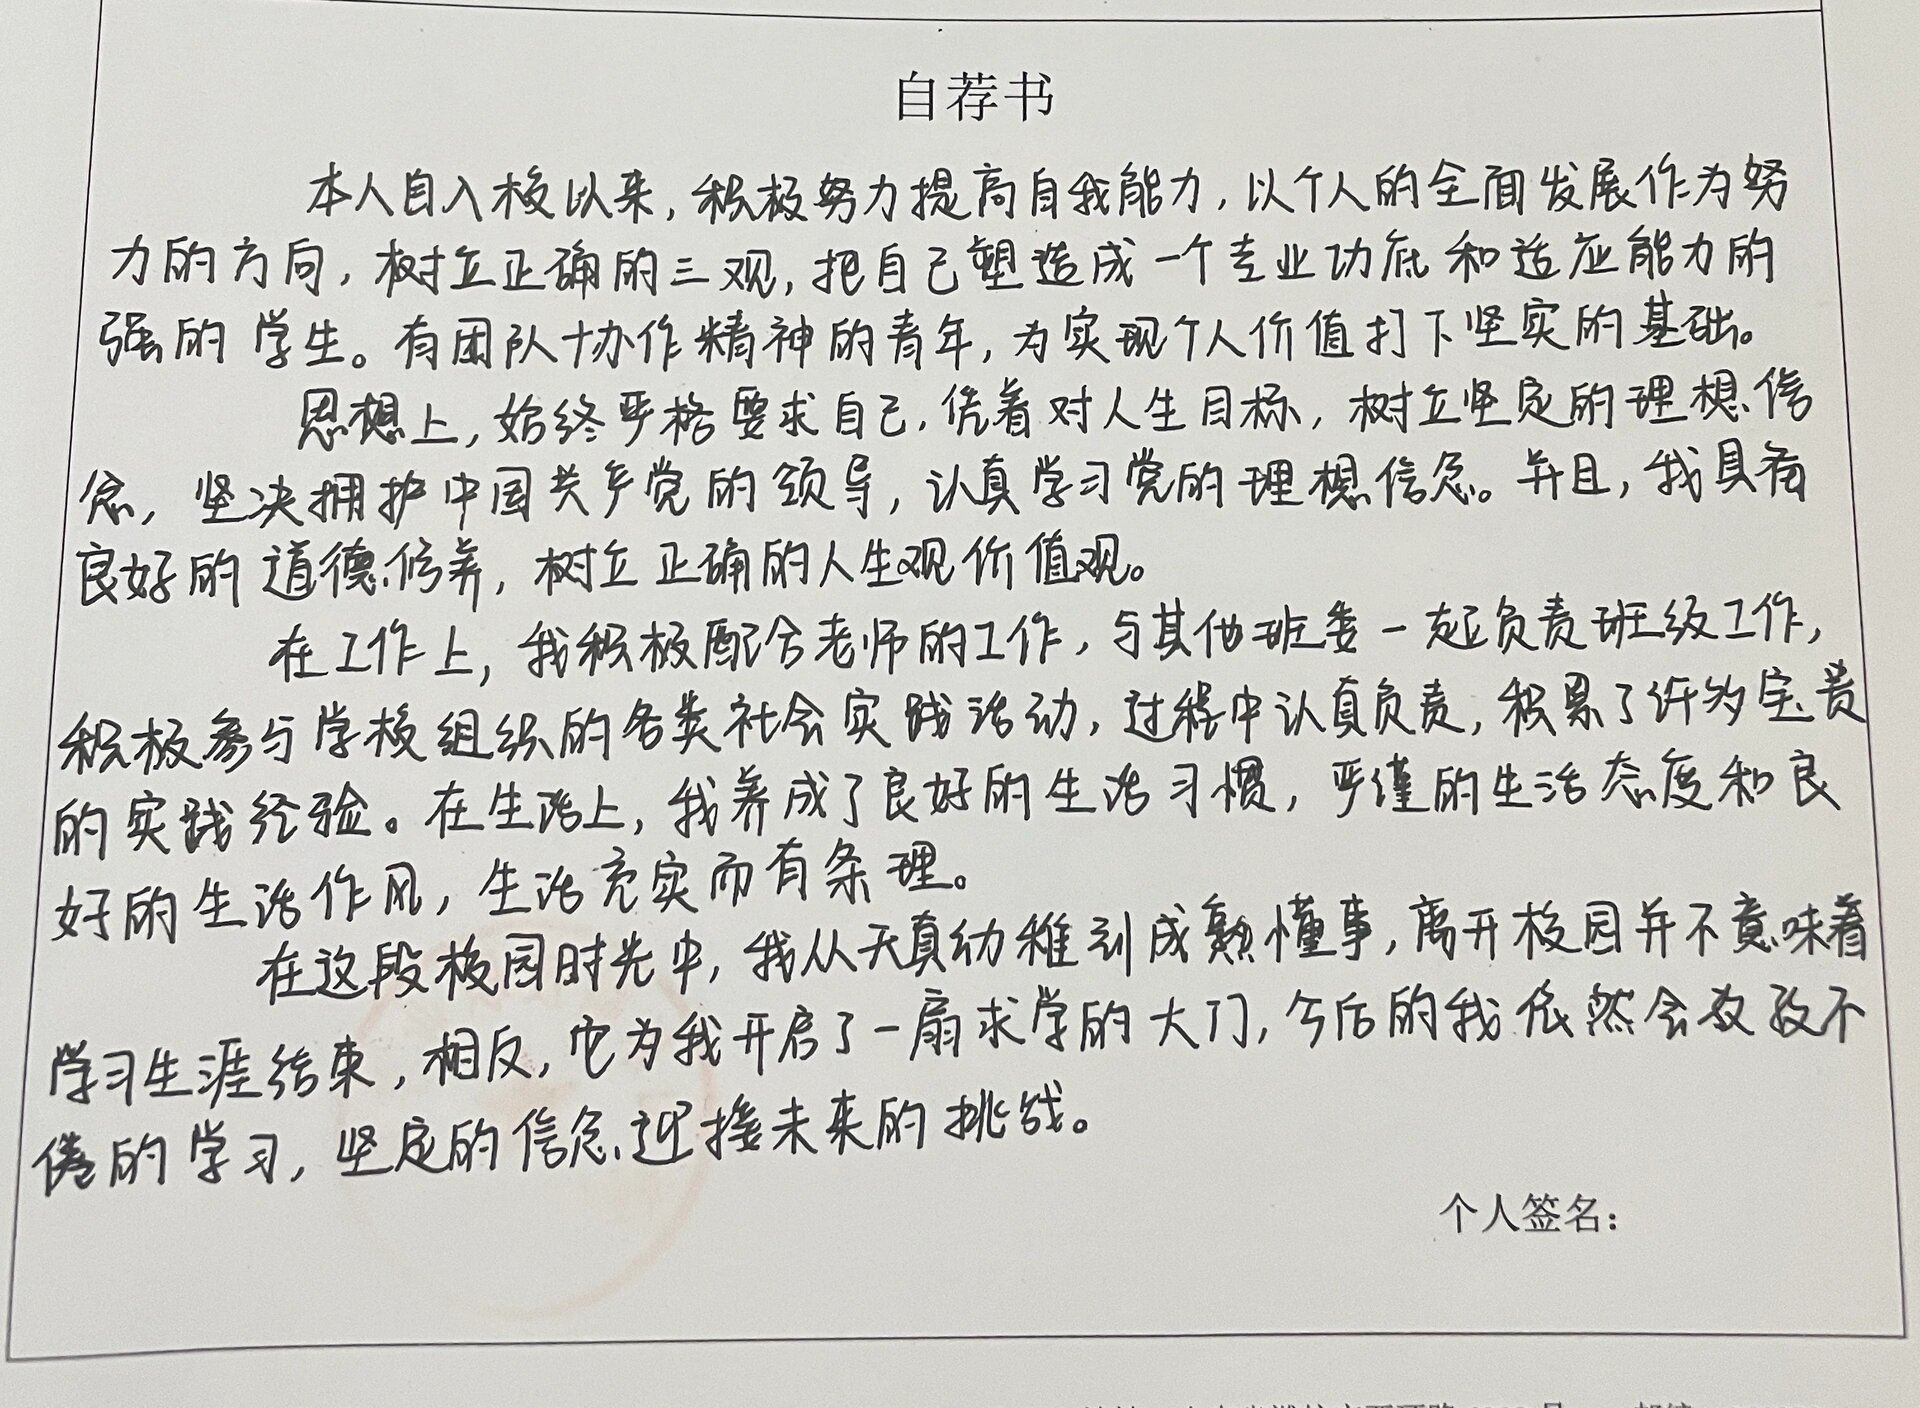 自荐书
本人自入校以来，积极努力提高自我能力，以个人的全面发展作为努
力的方向，树立正确的三观，把自己塑造成一个专业功底和适应能力的
强的学生。有团队协作精神的青年，为实现个人价值打下坚实的基础。
思想上，始终严格要求自己，凭着对人生目标，树立坚定的理想信
念，坚决拥护中国共产党的领导，认真学习党的理想信念。并且，我具有
良好的道德修养，树立正确的人生观价值观。
在工作上，我积极配合老师的工作，与其他班委一起负责班级工作，
积极参与学校组织的各类社会实践活动，过程中认真负责，积累了许多宝贵
的实践经验。在生活上，我养成了良好的生活习惯，严谨的生活态度和良
好的生活作风，生活充实而有条理。
在这段校园时光中，我从天真幼稚到成熟懂事，离开校园并不意味着
学习生涯结束，相反，它为我开启了一扇求学的大门，今后的我依然会孜孜不
倦的学习，坚定的信念迎接未来的挑战。
个人签名：